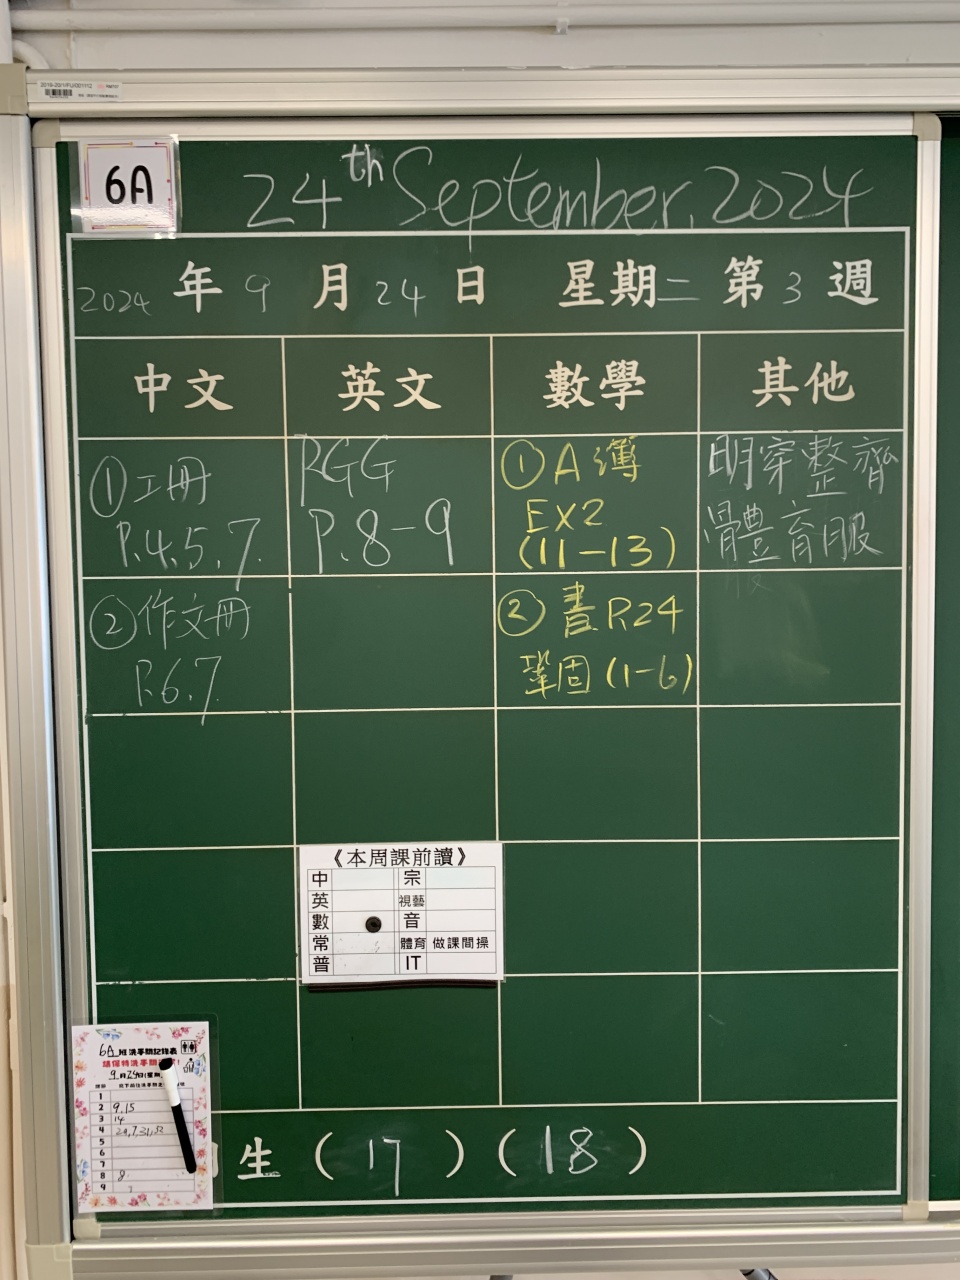 6A
24th September, 2024
2024 年 9 月 24 日 星期二 第 3 週
中文 英文 數學 其他
① 工冊
P.4, 5, 7.
② 作文冊
P.6, 7.
RGG
P.8-9
① A 簿
EX2
(11-13)
② 書 P.24
鞏固 (1-6)
明穿整齊
體育服
《本周課前讀》
中 宗
英 視藝
數 音
常 體育 做課間操
普 IT
6A 班洗手間記錄表
9月24日(星期
1
2 9, 15
3 14
4
5
6
7
8 8
9
生 ( 17 ) ( 18 )